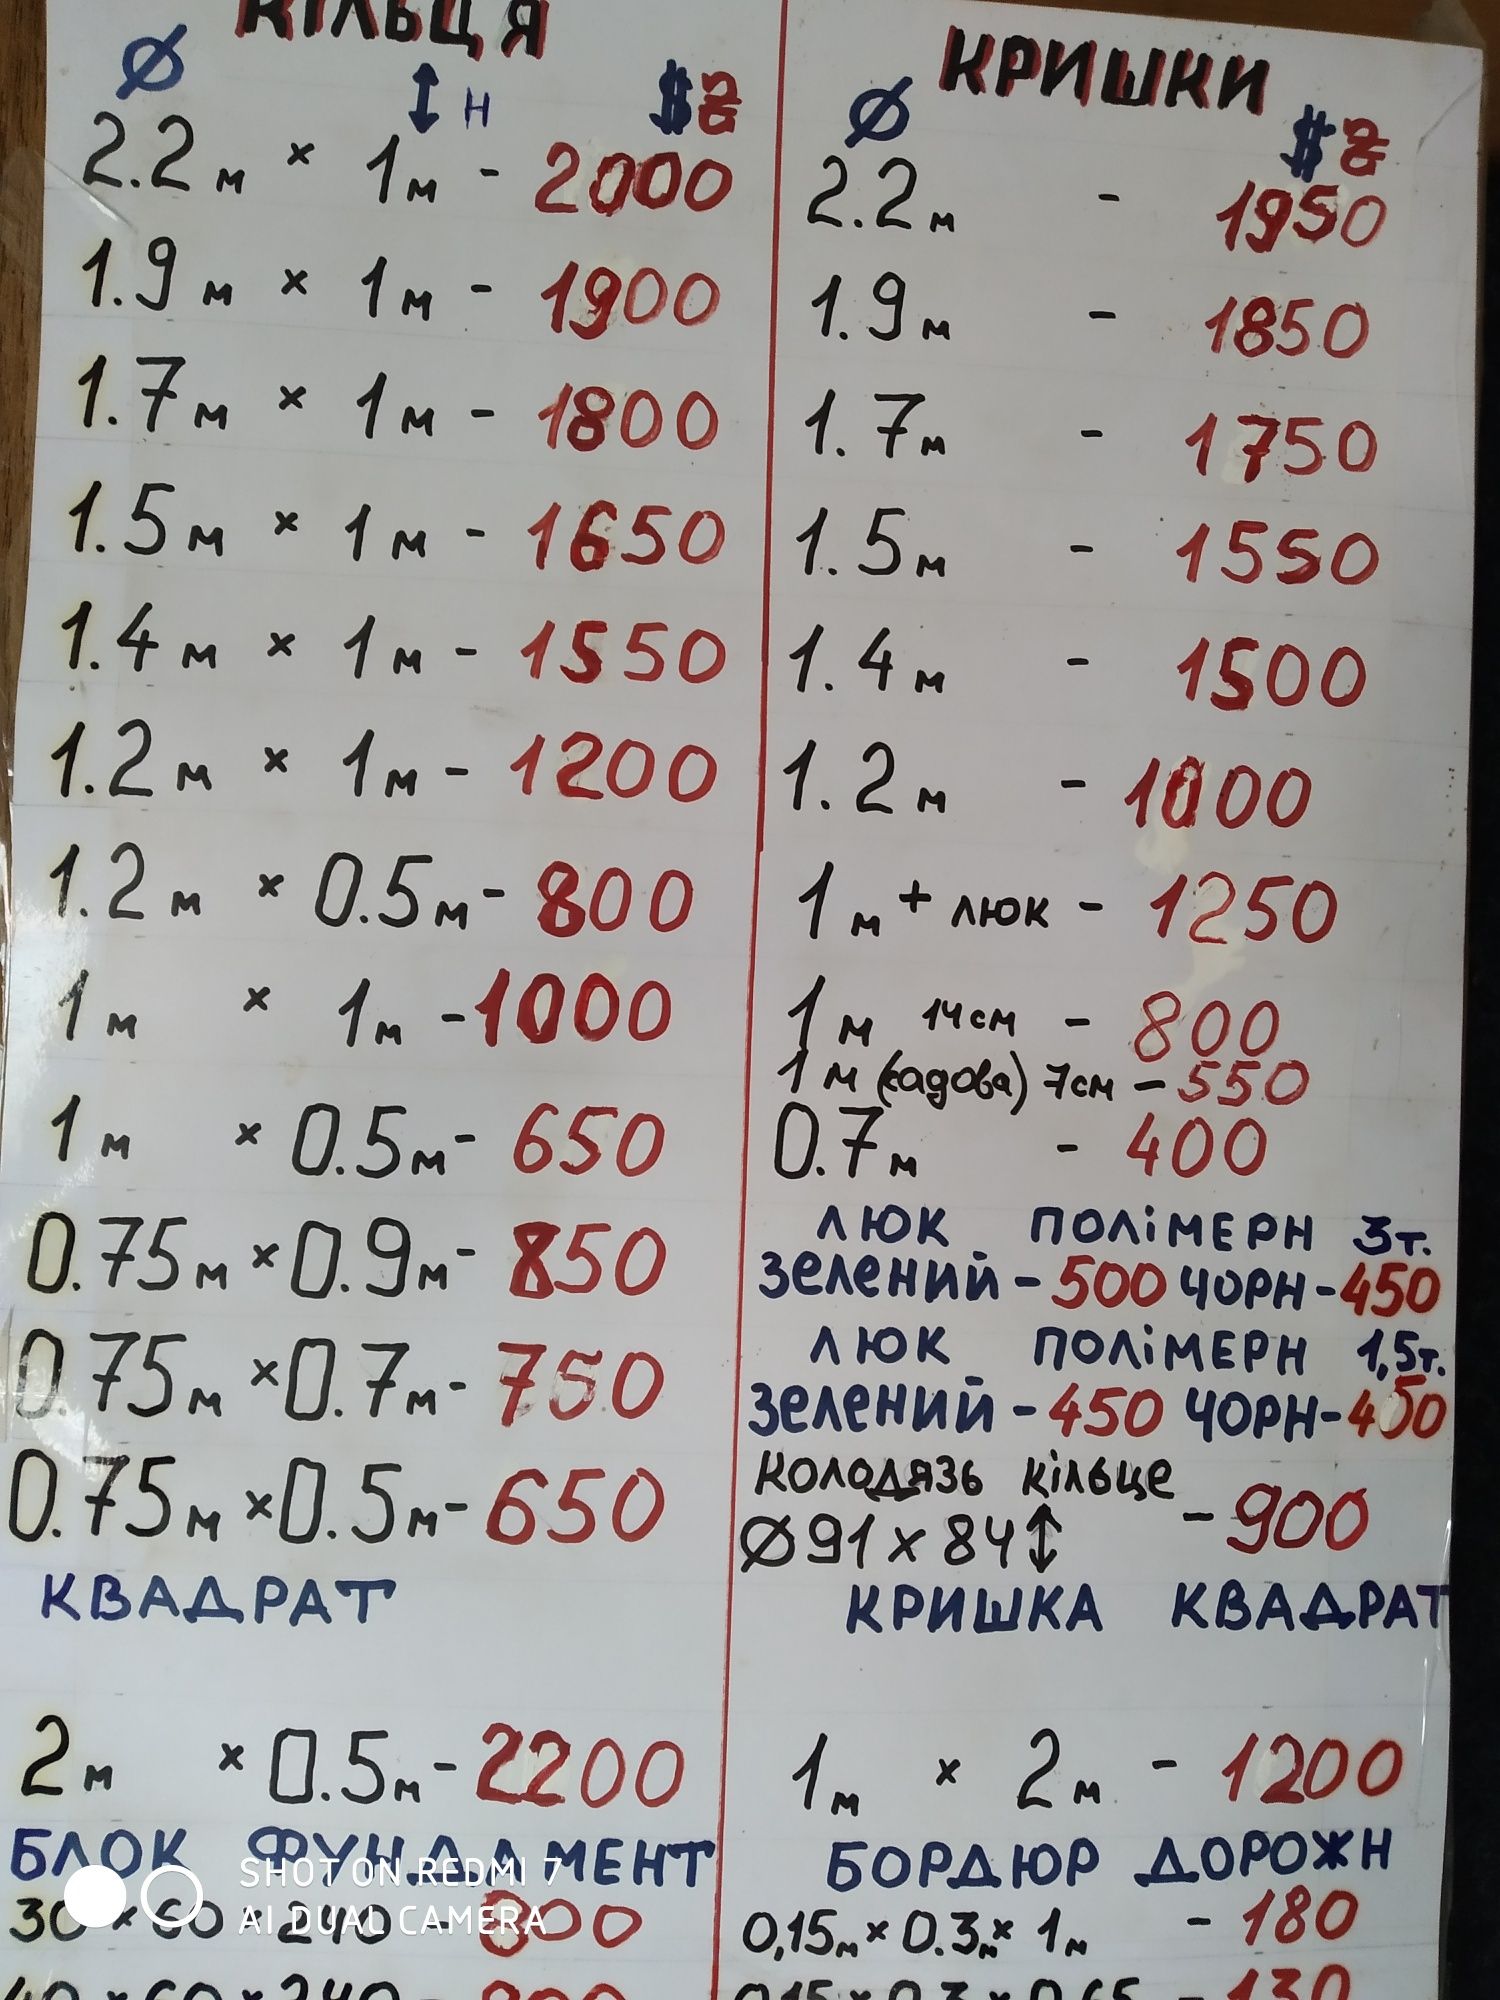 КІЛЬЦЯ
Ø ↕ H $₴
2.2м × 1м - 2000
1.9м × 1м - 1900
1.7м × 1м - 1800
1.5м × 1м - 1650
1.4м × 1м - 1550
1.2м × 1м - 1200
1.2м × 0.5м - 800
1м × 1м - 1000
1м × 0.5м - 650
0.75м × 0.9м - 850
0.75м × 0.7м - 750
0.75м × 0.5м - 650
КВАДРАТ
2м × 0.5м - 2200
БЛОК ФУНДАМЕНТ
30 × 60 × 240 - 800
40 × 60 × 240 - 900
КРИШКИ
Ø $₴
2.2м - 1950
1.9м - 1850
1.7м - 1750
1.5м - 1550
1.4м - 1500
1.2м - 1000
1м + люк - 1250
1м 14см - 800
1м (садова) 7см - 550
0.7м - 400
ЛЮК ПОЛІМЕРН 3т.
зелений - 500 ЧОРН - 450
ЛЮК ПОЛІМЕРН 1,5т.
зелений - 450 ЧОРН - 400
Колодязь кільце
Ø 91 × 84 ↕ - 900
КРИШКА КВАДРАТ
1м × 2м - 1200
БОРДЮР ДОРОЖН
0,15м × 0.3м × 1м - 180
0.15 × 0.3 × 0.65 - 130
SHOT ON REDMI 7
AI DUAL CAMERA